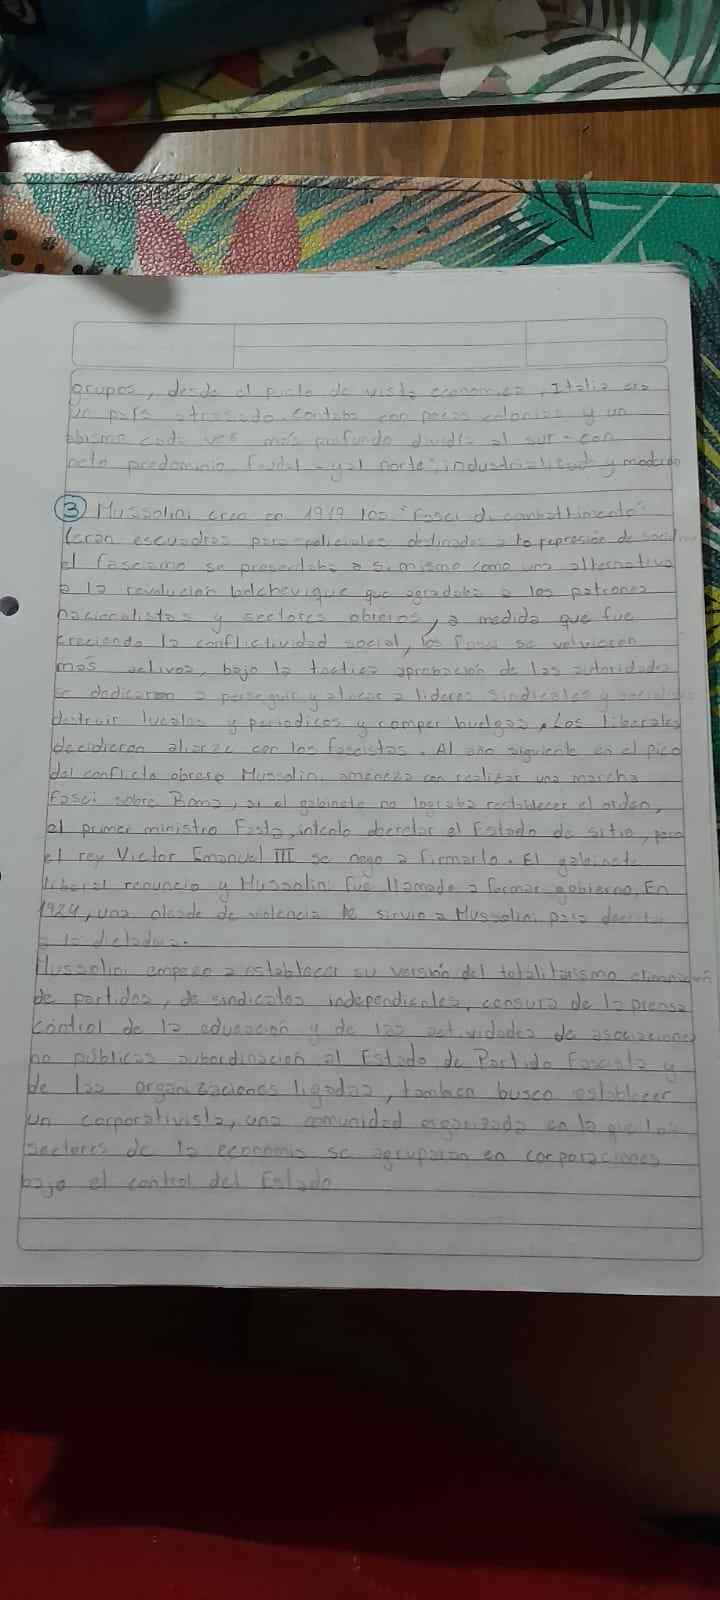 grupos, desde el punto de vista economico, Italia era
un país atrasado. contaba con pocas colonias y un
abismo cada vez más profundo dividía al sur - con
neto predominio feudal - y al norte, industrializado y moderado
3 Mussolini creo en 1919 los "Fasci di combattimento"
(eran escuadras para-policiales destinadas a la represión de
el fascismo se presentaba a si mismo como una alternativa
a la revolución bolchevique que agradaba a los patrones
nacionalistas y sectores obreros, a medida que fue
creciendo la conflictividad social, los Fasci se volvieron
más activos, bajo la tactica aprobación de las autoridades
se dedicaron a perseguir y atacar a lideres sindicales y
destruir locales y periodicos y romper huelgas. Los liberales
decidieron alianza con los fascistas. Al año siguiente en el pico
del conflicto obrero Mussolini amenaza con realizar una marcha
Fasci sobre Roma, si el gabinete no lograba restablecer el orden,
el primer ministro Facta, intento decretar el Estado de sitio, pero
el rey Victor Emanuel III se nego a firmarlo. El gabinete
liberal renuncio y Mussolini fue llamado a formar gobierno. En
1924, una oleada de violencia le sirvio a Mussolini para
a la dictadura.
Mussolini empezo a establecer su versión del totalitarismo eliminación
de partidos, de sindicatos independientes, censura de la prensa
control de la educación y de las actividades de asociaciones
no públicas subordinación al Estado, de Partido Fascista y
de las organizaciones ligadas, tambien busco establecer
un corporativista, una comunidad organizada en la que los
sectores de la economia se agruparan en corporaciones
bajo el control del Estado